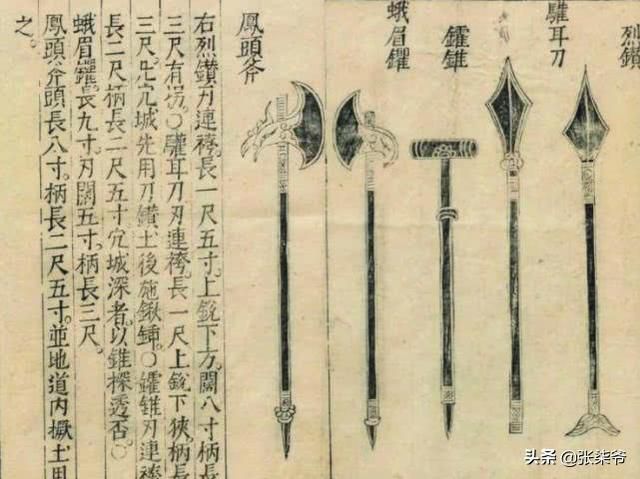 烈鑚
驢耳刀
鑺錐
蛾眉钁
鳳頭斧
右烈鑚刃連袴長一尺五寸上銳下方闊八寸柄長
三尺有拐〇驢耳刀刃連袴長一尺上銳下狹柄長
三尺凡穴城先用刀鑚土後施鍬鍤〇鑺錐刃連袴
長二尺柄長二尺五寸穴城深者以錐探透否〇
蛾眉钁長九寸刃闊五寸柄長三尺
鳳頭斧頭長八寸柄長二尺五寸並地道內撅土用
之
头条 @张柒爷